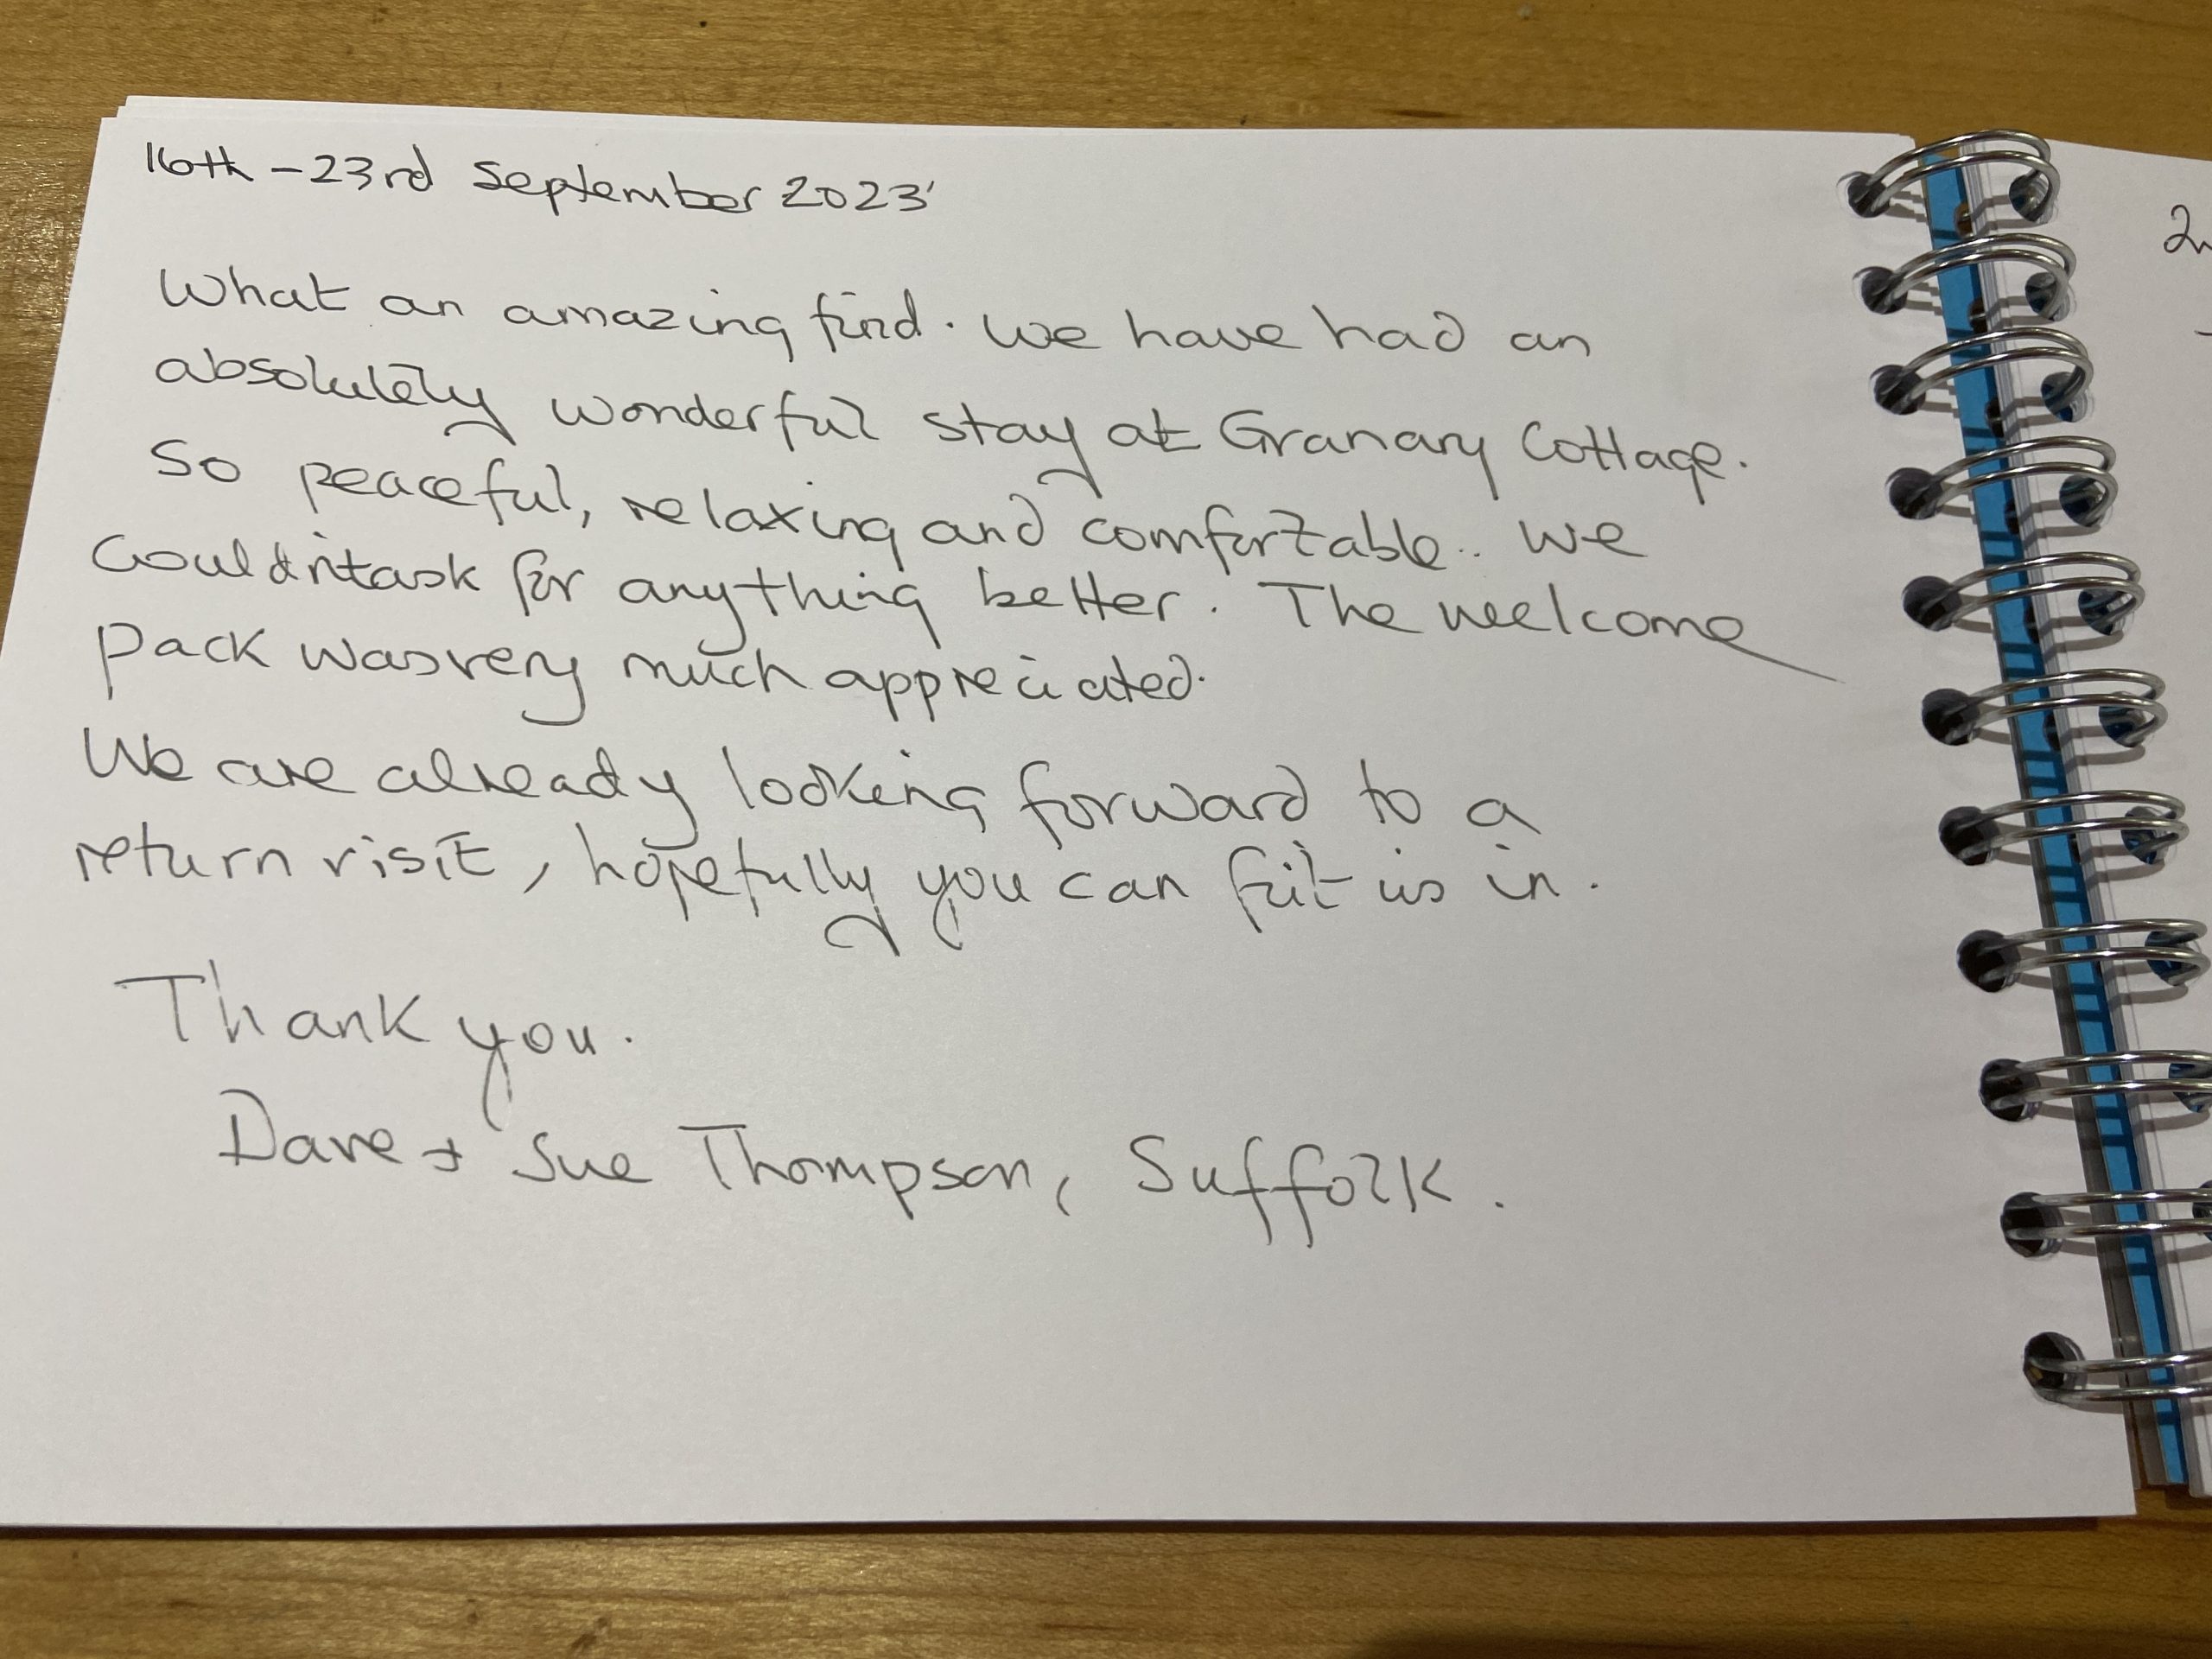 16th - 23rd September 2023
What an amazing find. We have had an
absolutely wonderful stay at Granary Cottage.
So peaceful, relaxing and comfortable.. We
Couldn't ask for anything better. The welcome
pack was very much appreciated.
We are already looking forward to a
return visit, hopefully you can fit us in.
Thank you.
Dave + Sue Thompson, Suffolk.